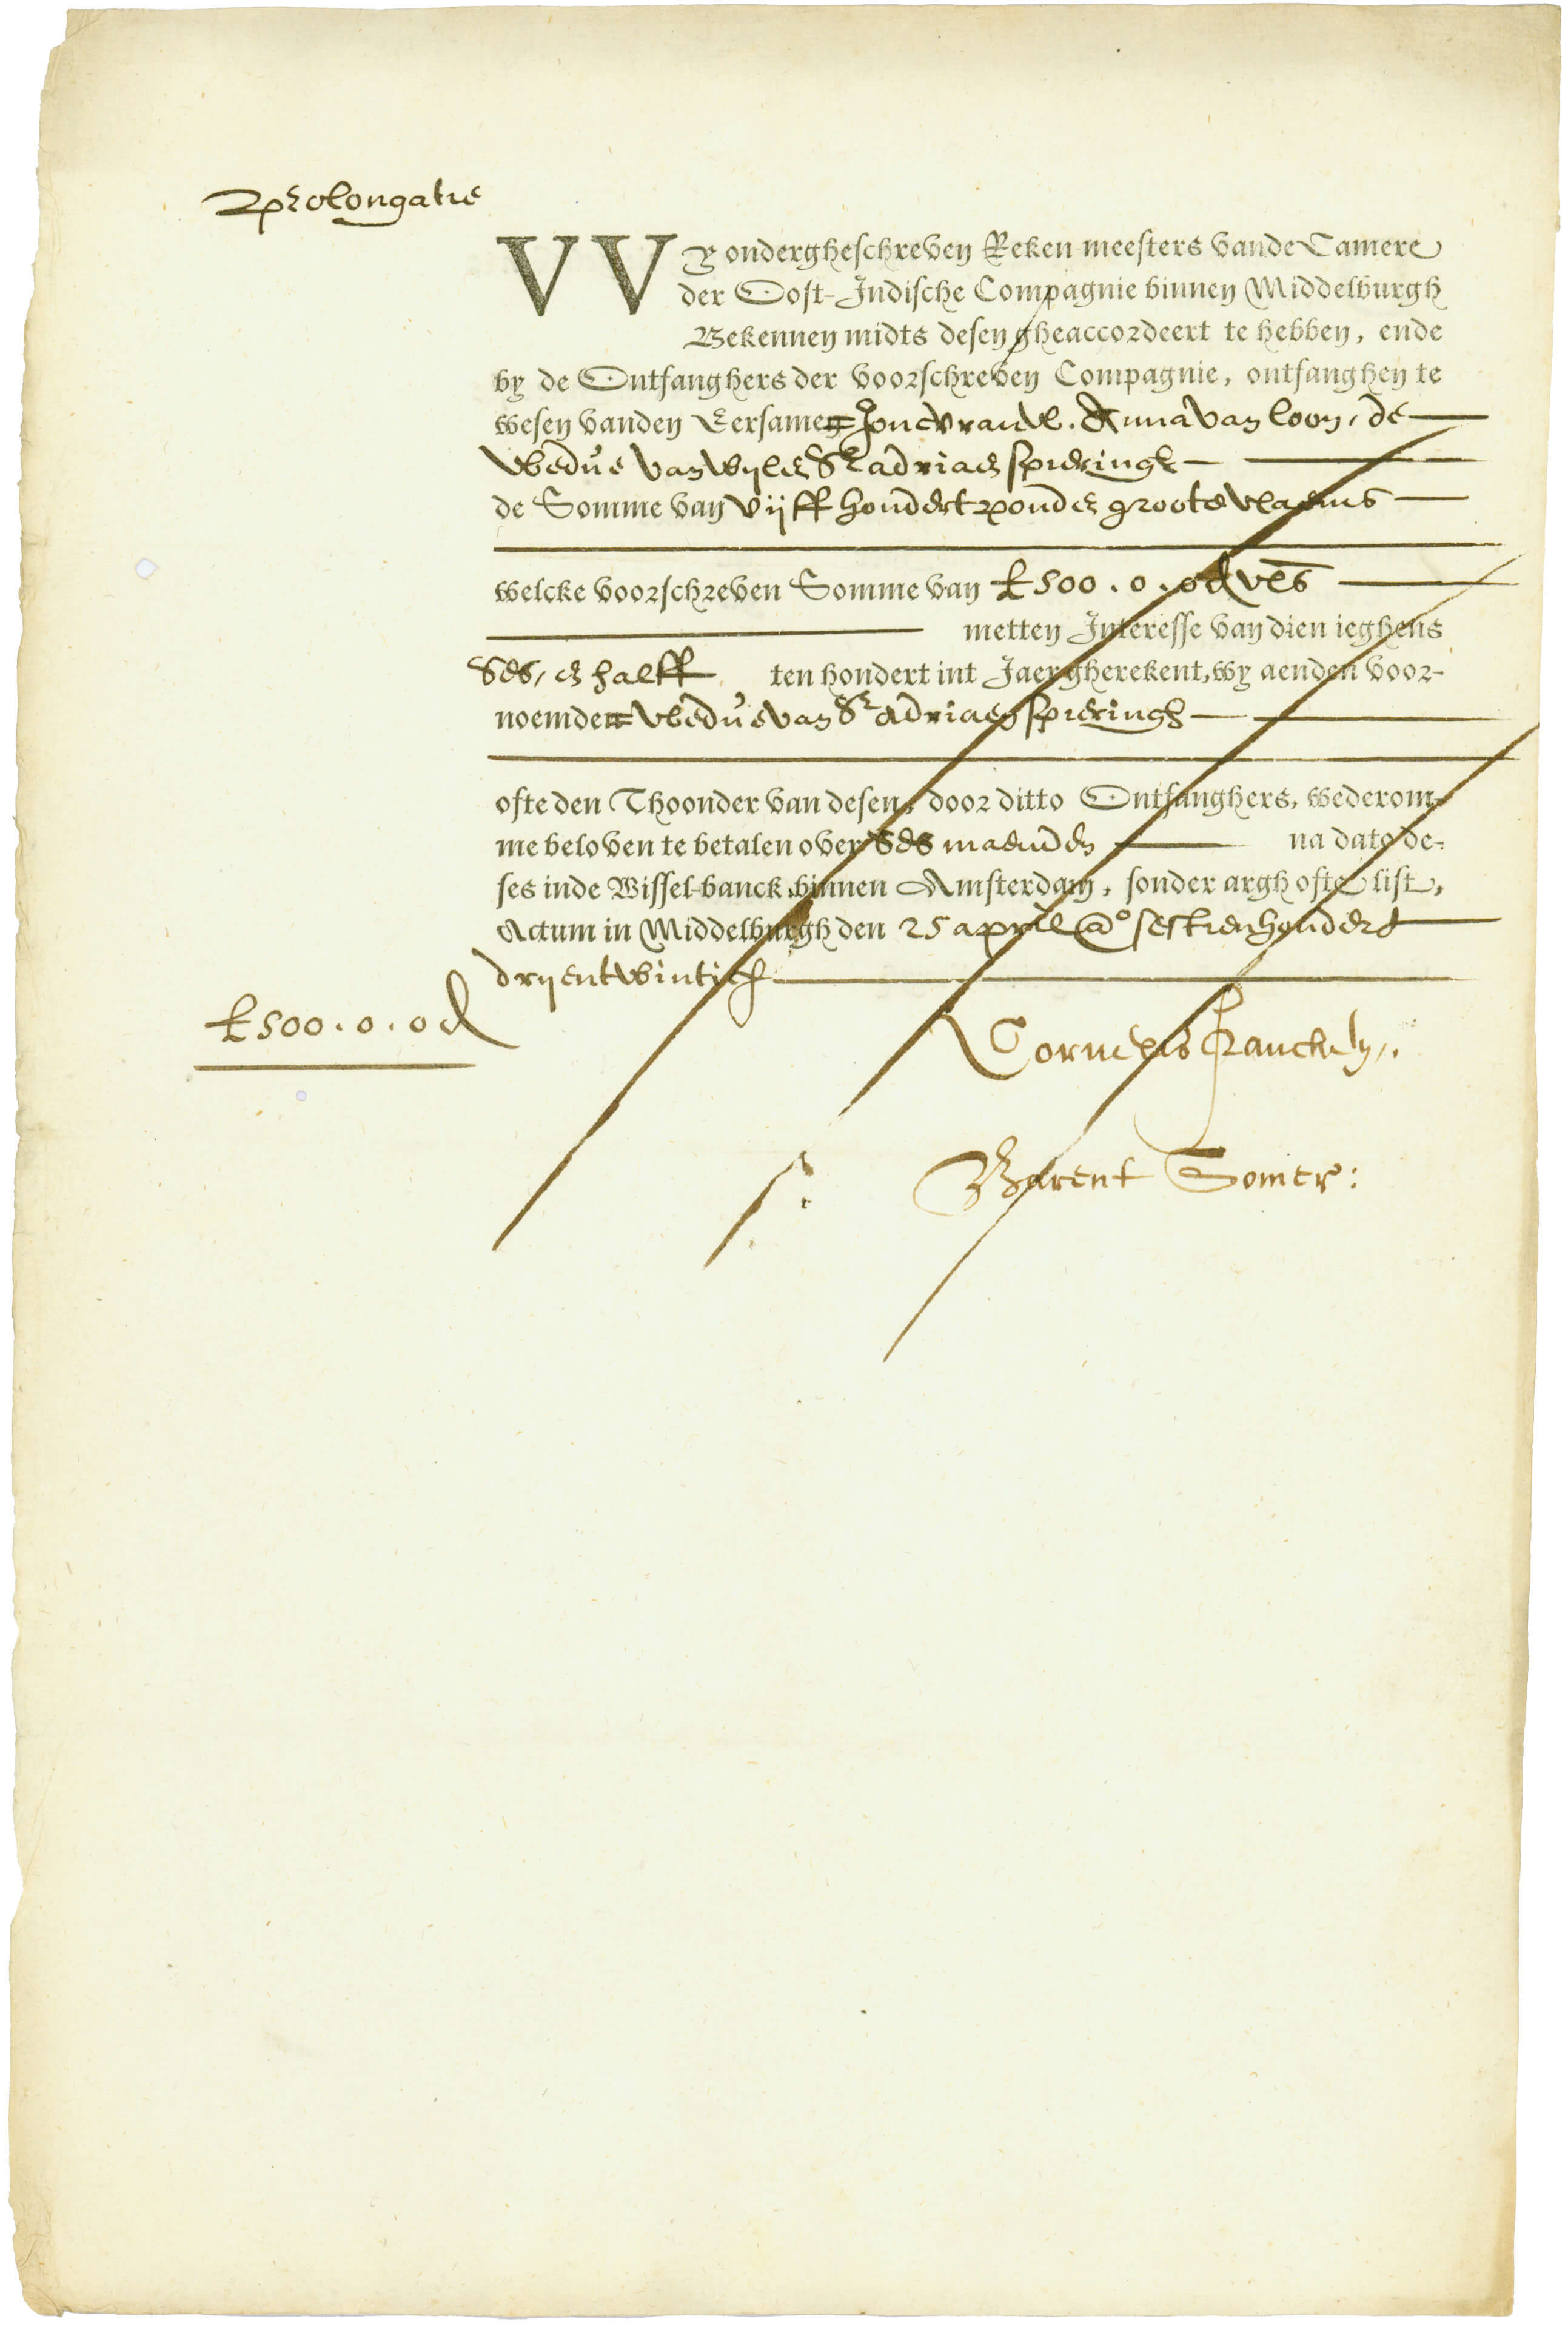 Prolongatie
WY ondergheschreven Reken-meesters vande Camere
der Oost-Indische Compagnie binnen Middelburgh
Bekennen midts desen gheaccordeert te hebben, ende
by de Ontfanghers der voorschreven Compagnie, ontfanghen te
wesen vanden Eersamen Joncvrauw. Anna van loon, de
Weduе van Wylen Sr adriaen spieringh
de Somme van vijff hondert ponden groote vlaems
welcke voorschreven Somme van £ 500 . 0 . 0 d vls
metten Interesse van dien ieghens
Ses, en halff ten hondert int Jaer gherekent, wy aenden voor-
noemden Wedue van Sr Adriaen spieringh
ofte den Thoonder van desen, door ditto Ontfanghers, wederom-
me beloven te betalen over Ses maenden na dato de-
ses inde Wissel-banck binnen Amsterdam, sonder argh ofte list,
Actum in Middelburgh den 25 april @o sestienhondert
drijentwintich
£ 500 . 0 . 0 d
Cornelis
Barent Somer: